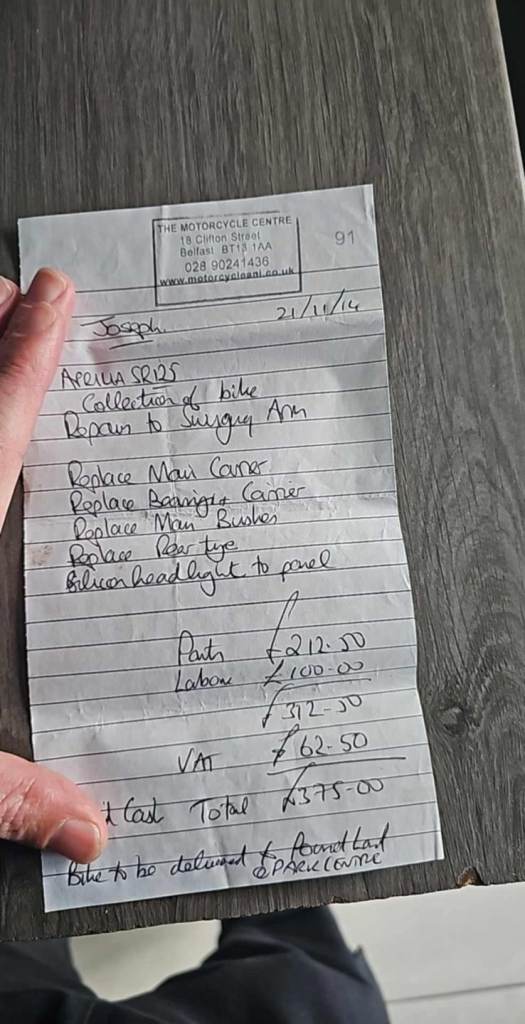 THE MOTORCYCLE CENTRE
18 Clifton Street
Belfast BT13 1AA
028 90241436
www.motorcycleani.co.uk
91
Joseph
21/11/14
APRILIA SR125
Collection of bike
Repairs to Swinging Arm
Replace Main Carrier
Replace Bearings + Carrier
Replace Main Bushes
Replace Rear tyre
Silicon headlight to panel
Parts £212.50
Labour £100.00
£312-50
VAT £62.50
Cost Total £375-00
Bike to be delivered to Poundland
@ PARK CENTRE